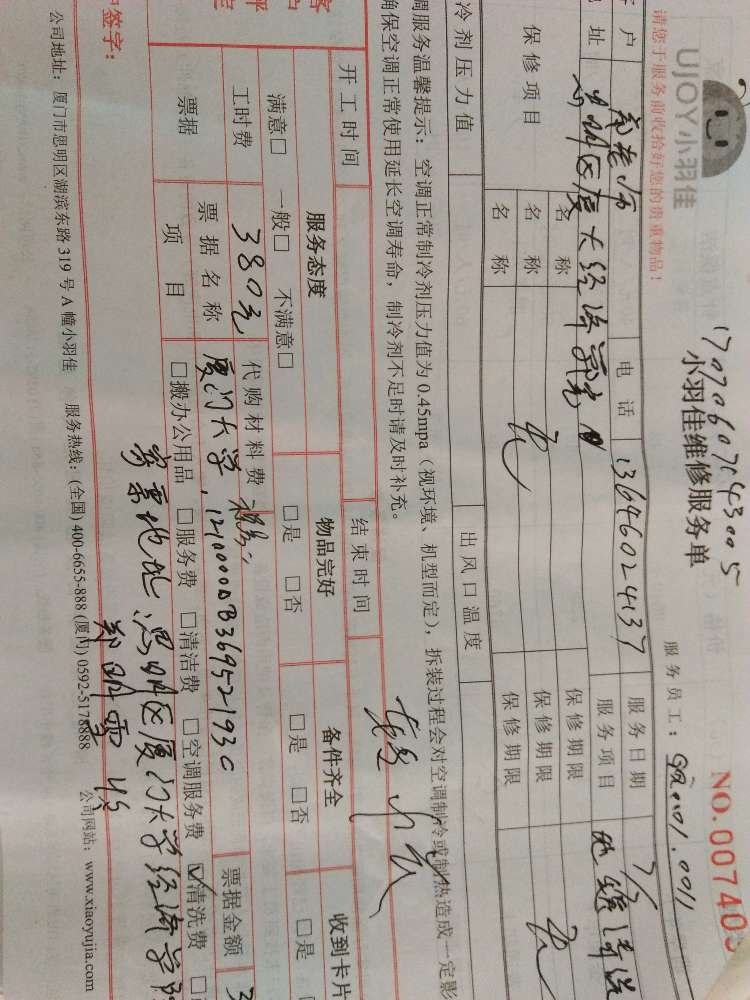 UJOY小羽佳
170706071543005
小羽佳维修服务单
NO.007405
请您于服务前收拾好您的贵重物品！
服务员工：
户
电话 13646024137 服务日期 7/5
址 思明区厦大经济学院 服务项目 地毯清洗
保修项目
名称 无 保修期限 无
名称 保修期限
名称 保修期限
冷剂压力值 出风口温度
调服务温馨提示：空调正常制冷剂压力值为0.45mpa（视环境、机型而定），拆装过程会对空调制冷或制热造成一定影
确保空调正常使用延长空调寿命，制冷剂不足时请及时补充。
开工时间 结束时间
服务态度 物品完好 备件齐全 收到卡片
满意□ 一般□ 不满意□ □是 □否 □是 □否 □是
工时费 380元 代购材料费 票据金额 3
票据 票据名称 厦门大学, 12100000B36952193C
项目 □搬办公用品 □服务费 □清洁费 □空调服务费 ☑清洗费
寄票地址 思明区厦门大学经济学院
签字：
公司地址：厦门市思明区湖滨东路319号A幢小羽佳 服务热线：(全国) 400-6655-888 (厦门) 0592-5178888 公司网站：www.xiaoyujia.com